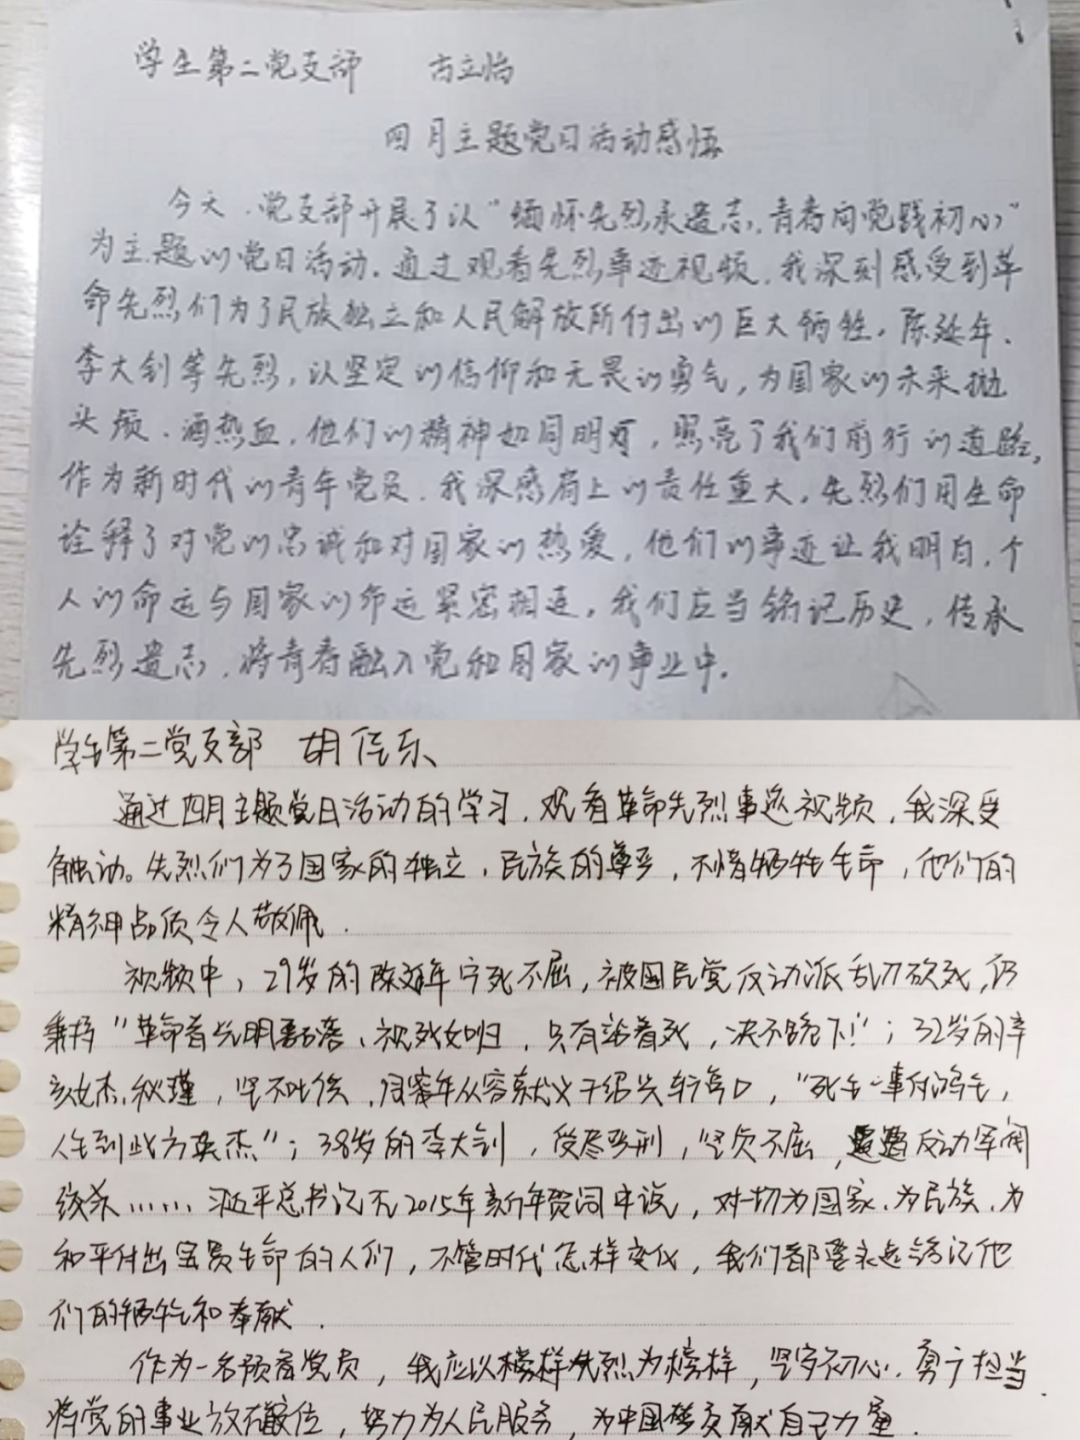 学生第二党支部 古立怡
四月主题党日活动感悟
今天，党支部开展了以“缅怀先烈承遗志，青春向党践初心”
为主题的党日活动。通过观看先烈事迹视频，我深刻感受到革
命先烈们为了民族独立和人民解放所付出的巨大牺牲。陈延年、
李大钊等先烈，以坚定的信仰和无畏的勇气，为国家的未来抛
头颅、洒热血，他们的精神如同明灯，照亮了我们前行的道路，
作为新时代的青年党员，我深感肩上的责任重大，先烈们用生命
诠释了对党的忠诚和对国家的热爱，他们的事迹让我明白，个
人的命运与国家的命运紧密相连，我们应当铭记历史，传承
先烈遗志，将青春融入党和国家的事业中。
学生第二党支部 胡信乐
通过四月主题党日活动的学习，观看革命先烈事迹视频，我深受
触动。先烈们为了国家的独立，民族的尊严，不惜牺牲生命，他们的
精神品质令人敬佩.
视频中，29岁的陈延年宁死不屈，被国民党反动派乱刀砍死，仍
秉持“革命者光明磊落、视死如归，只有站着死，决不跪下！”；32岁的辛
亥女杰秋瑾，坚不吐供，从容就义于绍兴轩亭口，“死生一事付鸿毛，
人生到此方英杰”；38岁的李大钊，受尽严刑，坚贞不屈，遭反动军阀
绞杀……习近平总书记在2015年新年贺词中说，对一切为国家、为民族、为
和平付出宝贵生命的人们，不管时代怎样变化，我们都要永远铭记他
们的牺牲和奉献.
作为一名预备党员，我应以先烈为榜样，坚守初心，勇于担当，
将党的事业放在首位，努力为人民服务，为中国梦贡献自己力量.